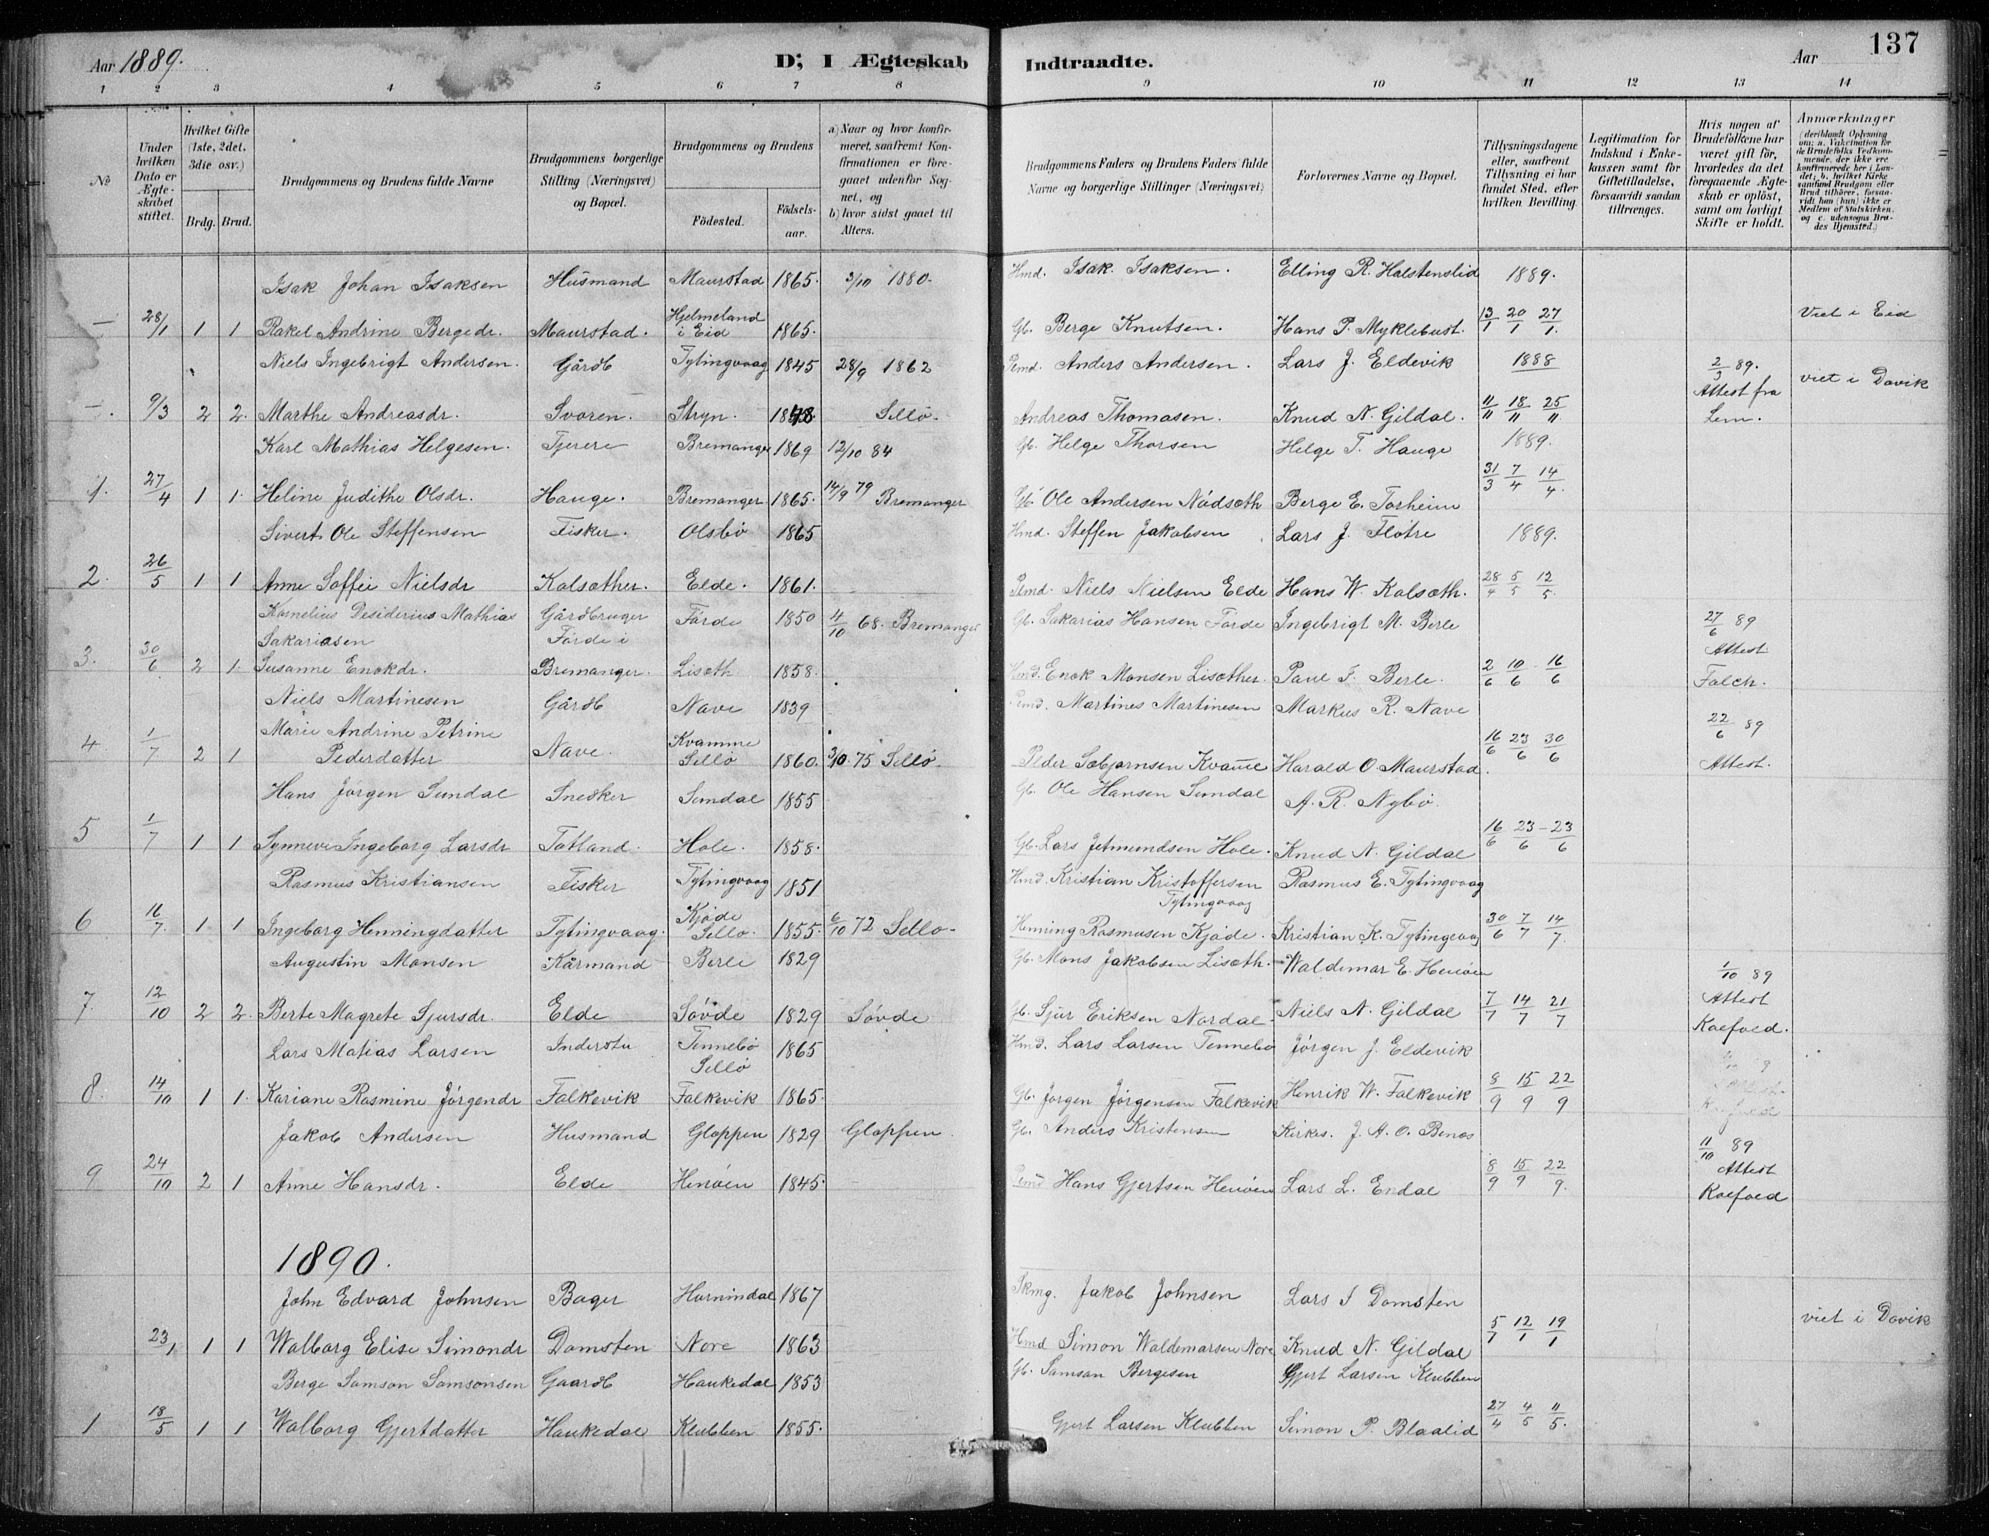 Aar 1889.
D; I Ægteskab
Indtraadte.
Aar
137
1 2 3 4 5 6 7 8 9 10 11 12 13 14
No
Under hvilken Dato er Ægteskabet stiftet.
Hvilket Gifte (1ste, 2det, 3die osv.)
Brdg. Brud.
Brudgommens og Brudens fulde Navne
Brudgommens borgerlige Stilling (Næringsvei) og Bopæl.
Brudgommens og Brudens
Födested.
Födselsaar.
a) Naar og hvor konfirmeret, saafremt Konfirmationen er foregaaet udenfor Sognet, og
b) hvor sidst gaaet til Alters.
Brudgommens Faders og Brudens Faders fulde Navne og borgerlige Stillinger (Næringsvei)
Forlovernes Navne og Bopæl.
Tillysningsdagene eller, saafremt Tillysning ei har fundet Sted, efter hvilken Bevilling.
Legitimation for Indskud i Enkekassen samt for Giftetilladelse, forsaavidt saadan tiltrænges.
Hvis nogen af Brudefolkene har været gift för, hvorledes da det foregaaende Ægteskab er oplöst, samt om lovligt Skifte er holdt.
Anmærkninger (deriblandt Oplysning om: a. Vakcination for de Brudefolks Vedkommende, der ikke ere konfirmerede her i Landet; b. hvilket Kirkesamfund Brudgom eller Brud tilhörer, forsaavidt han (hun) ikke er Medlem af Statskirken, og c. udensogns Brudes Hjemsted.)
Isak Johan Isaksen Husmand Maurstad 1865. 3/10 1880. Hmd. Isak Isaksen. Elling R. Halstenslid 1889.
— 28/1 1 1 Rakel Andrine Bergedr. Maurstad. Hjelmeland i Eid 1865. Gb. Berge Knutsen. Hans P. Myklebust. 13/1 20/1 27/1. Viet i Eid
Niels Ingebrigt Andersen. Gårdb Tytingvaag 1845 28/9 1862 Pmd. Anders Andersen. Lars J. Eldevik 1888 2/3 89.
—. 9/3 2 2. Marthe Andreasdr. Svoren. Stryn. 1848 Sellö. Andreas Thomasen. Knud N. Gildal. 11/11 18/11 25/11 Attest fra Lem. viet i Davik
Karl Mathias Helgesen. Tjerere Bremanger 1869 12/10 84 Gb. Helge Thorsen Helge T. Hauge 1889.
1. 27/4 1 1. Heline Judithe Olsdr. Hauge. Bremanger 1865. 14/9 79 Bremanger Gb. Ole Andersen Nödseth Berge E. Torheim 31/3 7/4 14/4.
Sivert Ole Steffensen Fisker. Olsbö 1865 Hmd. Steffen Jakobsen Lars J. Flötre 1889.
2. 26/5 1 1 Anne Soffie Nielsdr Kalsæther. Elde. 1861. Pmd. Niels Nielsen Elde Hans W. Kalsæth. 28/4 5/5 12/5.
Kornelius Desiderius Mathias Sakariasen Gårdbruger Förde i Förde 1850 4/10 68. Bremanger Gb. Sakarias Hansen Förde Ingebrigt M. Berle 27/6 89
3. 30/6 2 1. Susanne Enokdr. Bremanger. Lisæth 1858. Hmd. Enok Monsen Lisæther. Paul I. Berle. 2/6 10/6 16/6 Attest Falch.
Niels Martinesen Gårdb Nave 1839 Pmd. Martines Martinesen Markus R. Nave 22/6 89
4 1/7 2 1 Marie Andrine Petrine Pedersdatter Nave. Kvamme Sellö 1860. 3/10. 75 Sellö. Peder Sæbjørnsen Kvame Harald O. Maurstad. 16/6 23/6 30/6 Attest.
Hans Jörgen Sundal Snedker Sundal 1855 Gb. Ole Hansen Sundal A. R. Nybö.
5 1/7 1 1 Synneve Ingeborg Larsdr Totland. Hole. 1858. Gb. Lars Jetmundsen Hole. Knud N. Gildal 16/6 23/6 – 23/6
Rasmus Kristiansen Fisker Tytingvaag 1851 Hmd. Kristian Kristoffersen Tytingvaag Rasmus E. Tytingvaag
6 16/7. 1 1 Ingeborg Henningdatter Tytingvaag. Kjöde Sellö. 1855. 6/10 72 Sellö. Henning Rasmusen Kjöde. Kristian K. Tytingvaag 30/6 7/7 14/7.
Augustin Monsen Kårmand Berle 1829 Gb. Mons Jakobsen Lisæth. Waldemar E. Henöen 1/10 89
7. 12/10 2 2. Berte Magrete Sjursdr. Elde Sövde 1829 Sövde Gb. Sjur Eriksen Nordal. Niels N. Gildal 7/7 14/7 21/7 Attest Koefoed.
Lars Matias Larsen Inderstu Tennebö Sellö 1865 Hmd. Lars Larsen Tennebö Jörgen J. Eldevik
8. 14/10 1 1. Kariane Rasmine Jörgendr Falkevik Falkevik 1865. Gb. Jörgen Jörgensen Falkevik Henrik W. Falkevik 8/9 15/9 22/9
Jakob Andersen Husmand Gloppen 1829 Gloppen. Gb. Anders Kristensen Kirkes. J. A. O. Benes 11/10 89
9 24/10 2 1 Anne Hansdr. Elde Henöen 1845. Pmd Hans Gjertsen Henöen Lars L. Endal 8/9 15/9 22/9. Attest Koefoed
1890.
John Edvard Johnsen Bager Hornindal 1867 Skmg. Jakob Johnsen Lars I Domsten
23/1 1 1 Walborg Elise Simondr Domsten Nore 1863 Hmd Simon Waldemarsen Nore Knud N. Gildal 5/1 12/1 19/1 viet i Davik
Berge Samson Samsonsen Gaardb Haukedal 1853 Gb. Samson Bergesen Gjert Larsen Klubben
1 18/5 1 1 Walborg Gjertdatter Haukedal Klubben 1855. Gjert Larsen Klubben Simon P. Blaalid 27/4 4/5 11/5.